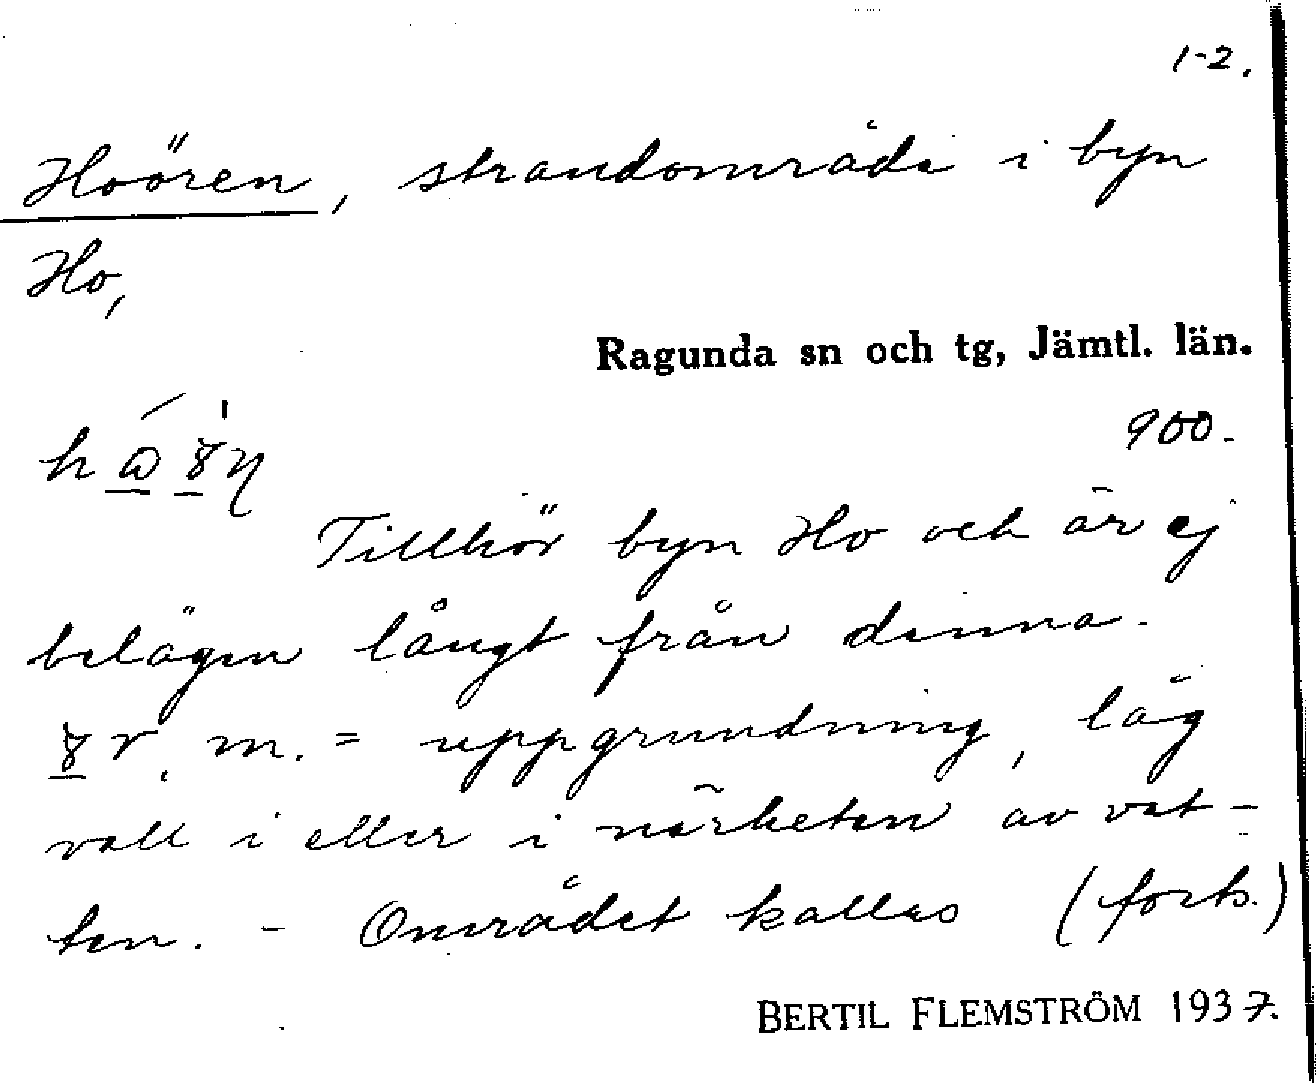 1-2.
Hoören, strandområde i byn
Ho,
Ragunda sn och tg, Jämtl. län.
900.
Tillhör byn Ho och är ej
belägen långt från denna.
m. = uppgrundning, låg
vall i eller i närheten av vat-
ten. - Området kallas (forts.)
BERTIL FLEMSTRÖM 1937.